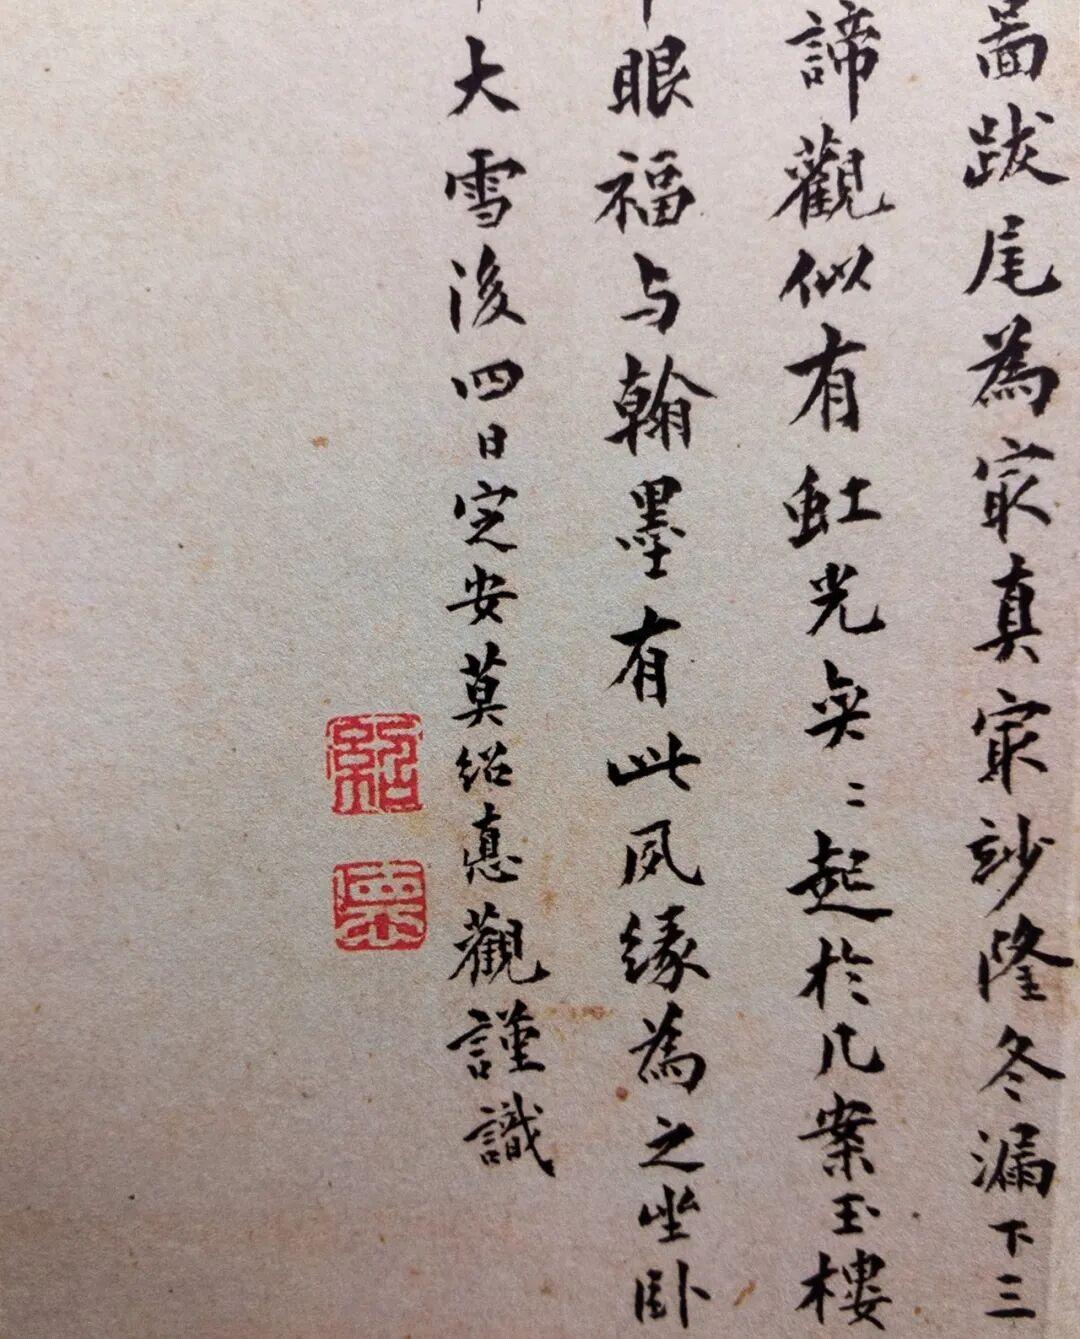 啚跋尾為冣真冣玅隆冬漏下三
諦觀似有虹光奐〻起於几案玉樓
眼福与翰墨有此夙緣為之坐臥
大雪後四日定安莫紹悳觀謹識
紹
悳